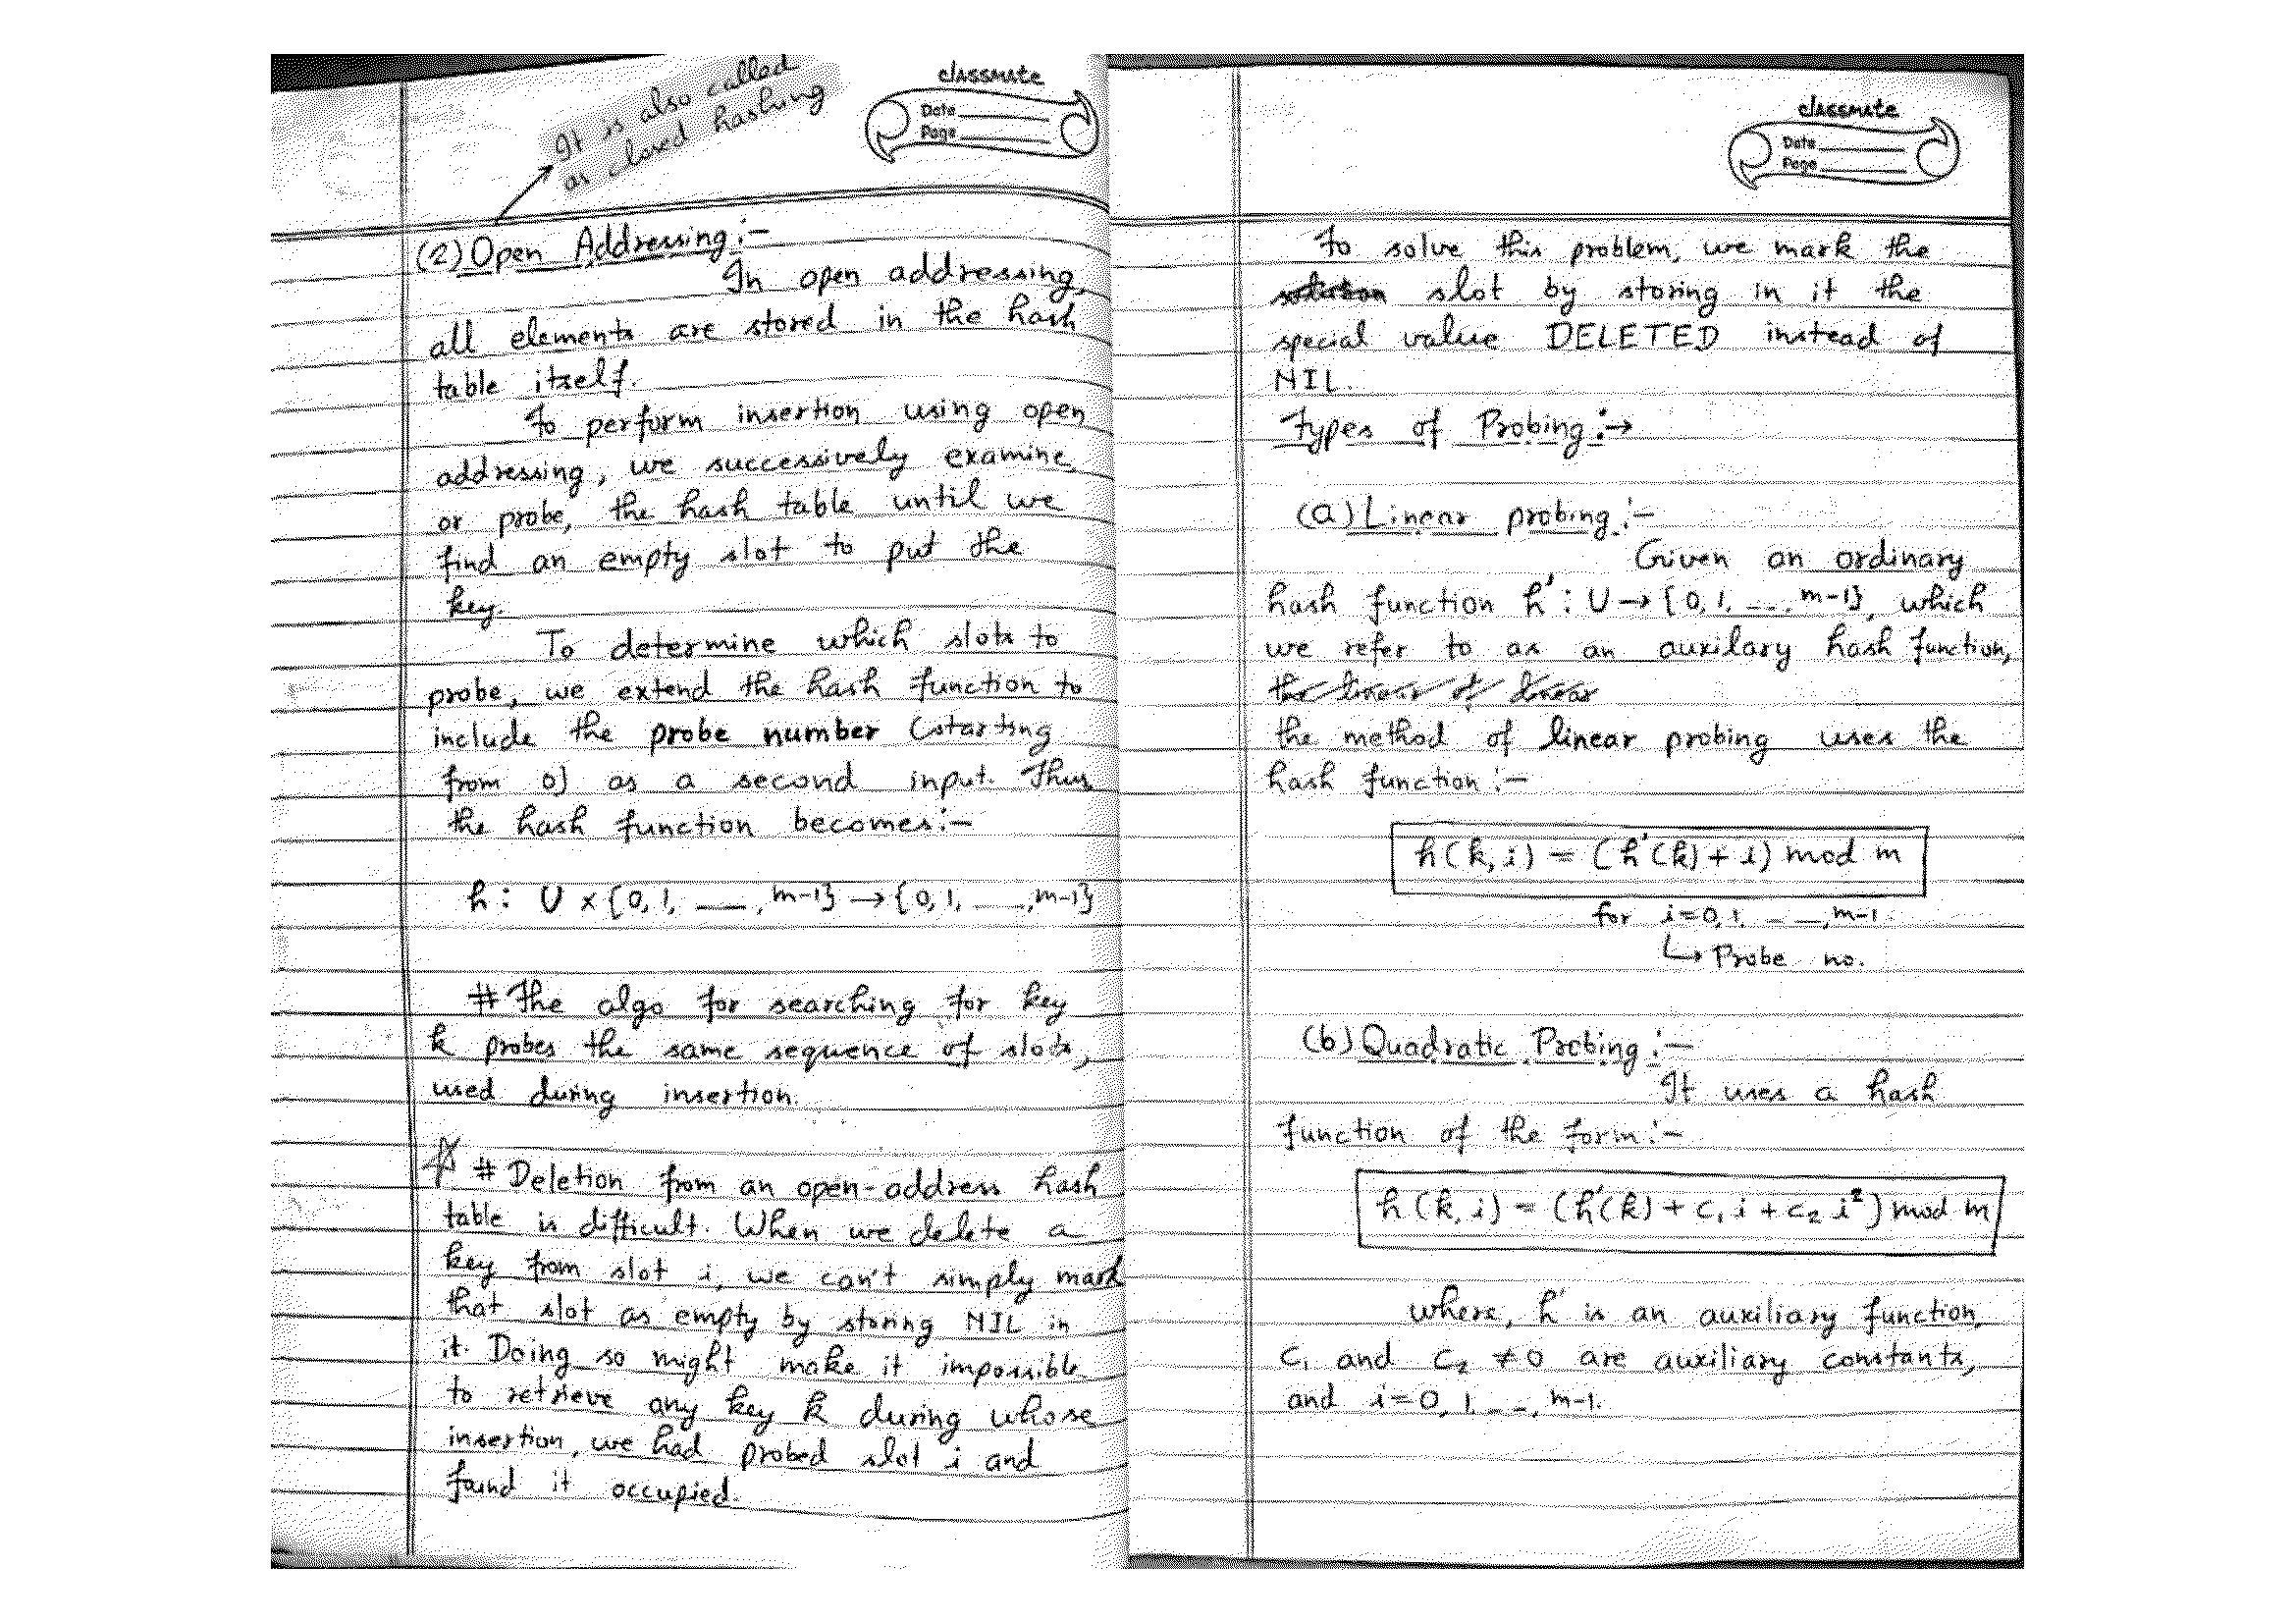 It is also called
as closed hashing
classmate
Date
Page
(2) Open Addressing :-
In open addressing,
all elements are stored in the hash
table itself.
To perform insertion using open
addressing, we successively examine
or probe, the hash table until we
find an empty slot to put the
key.
To determine which slots to
probe, we extend the hash function to
include the probe number (starting
from 0) as a second input. Thus
the hash function becomes:-
h : U x {0, 1, __, m-1} → {0, 1, __, m-1}
# The algo for searching for key
k probes the same sequence of slots,
used during insertion.
☆ # Deletion from an open-address hash
table is difficult. When we delete a
key from slot i, we can't simply mark
that slot as empty by storing NIL in
it. Doing so might make it impossible
to retrieve any key k during whose
insertion, we had probed slot i and
found it occupied.
classmate
Date
Page
To solve this problem, we mark the
slot by storing in it the
special value DELETED instead of
NIL.
Types of Probing :→
(a) Linear probing :-
Given an ordinary
hash function h' : U → {0, 1, _ _, m-1}, which
we refer to as an auxilary hash function,
the method of linear probing uses the
hash function :-
h(k, i) = (h'(k) + i) mod m
for i=0,1, _ _, m-1
↳ Probe no.
(b) Quadratic Probing :-
It uses a hash
function of the form :-
h(k, i) = (h'(k) + c₁ i + c₂ i²) mod m
where, h' is an auxiliary function,
c₁ and c₂ ≠ 0 are auxiliary constants,
and i = 0, 1, _ _, m-1.